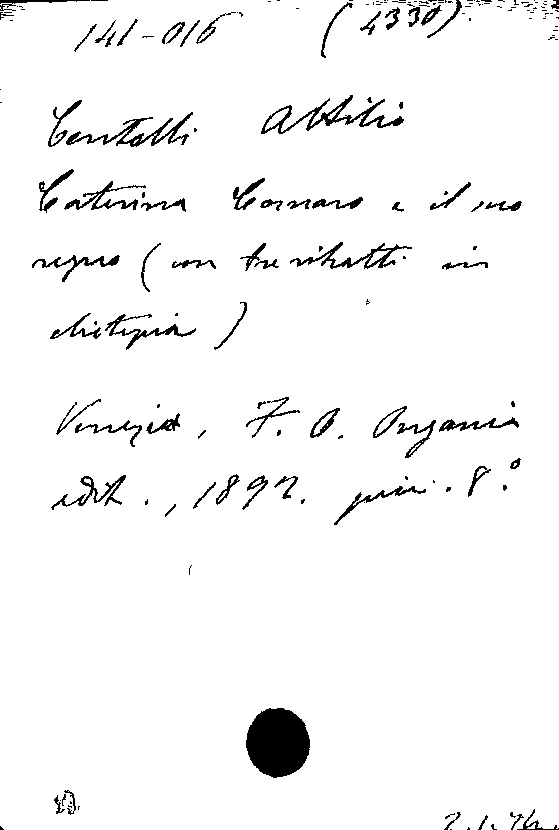 141-016 (4330).
Centelli Attilio
Caterina Cornaro e il suo
regno (con tre ritratti in
elietipia)
Venezia, F. O. Ongania
edit., 1892. picc. 8.º